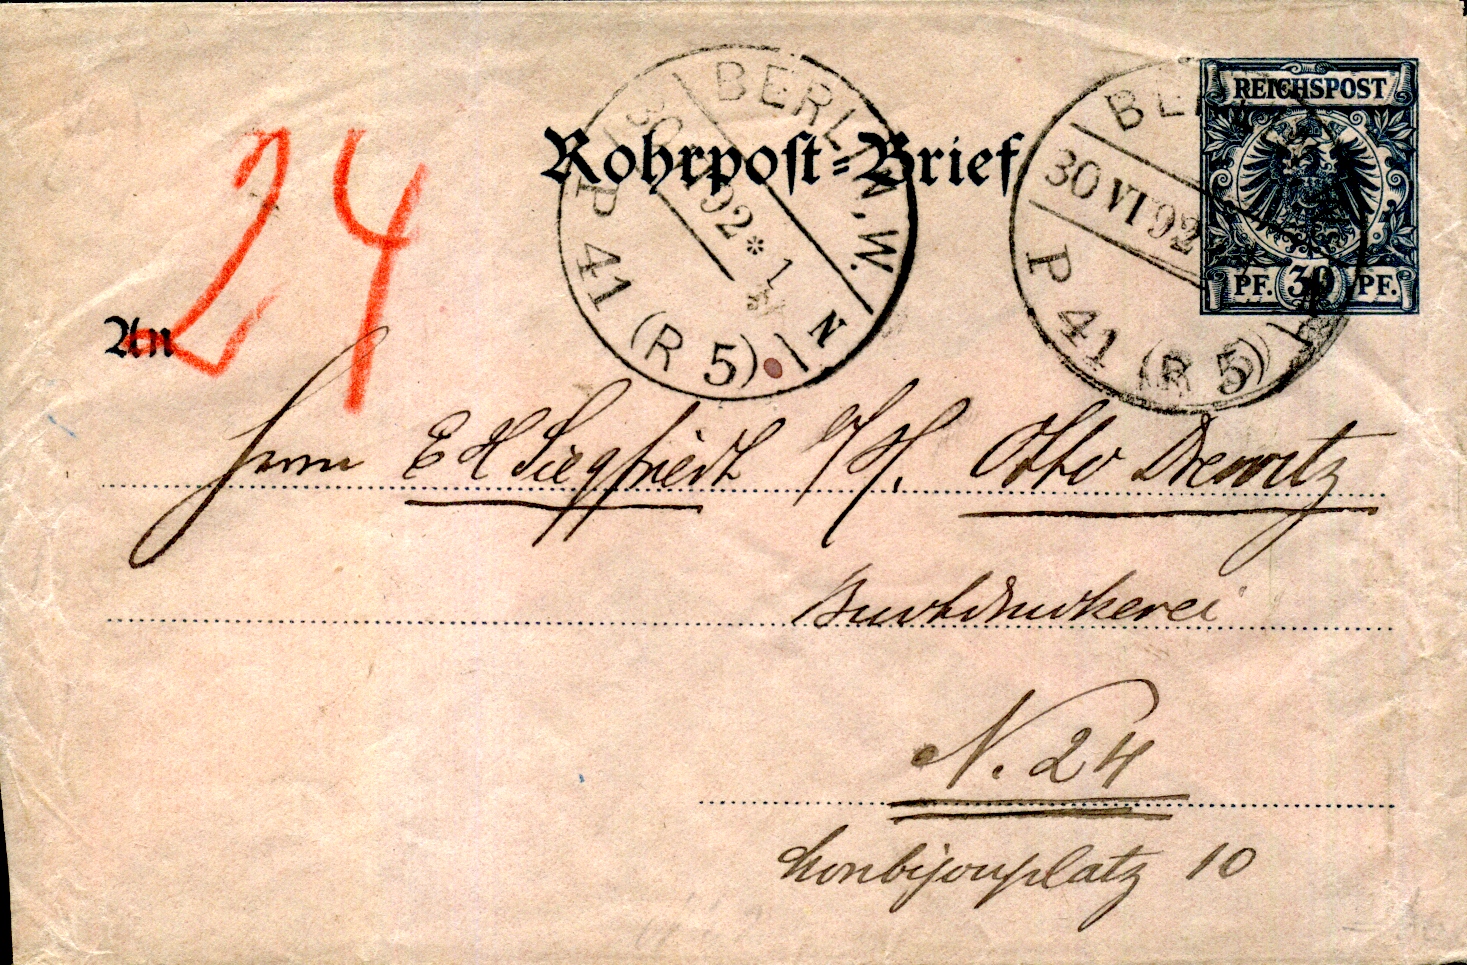 REICHSPOST
PF. 30 PF.
BERLIN, W.
92 * 1
N
P 41 (R 5)
BERLIN
30 VI 92
P 41 (R 5)
Rohrpoſt-Brief
24
An
Herrn E H Siegfriedt i/H. Otto Drewitz
Buchdruckerei
N. 24
Monbijouplatz 10